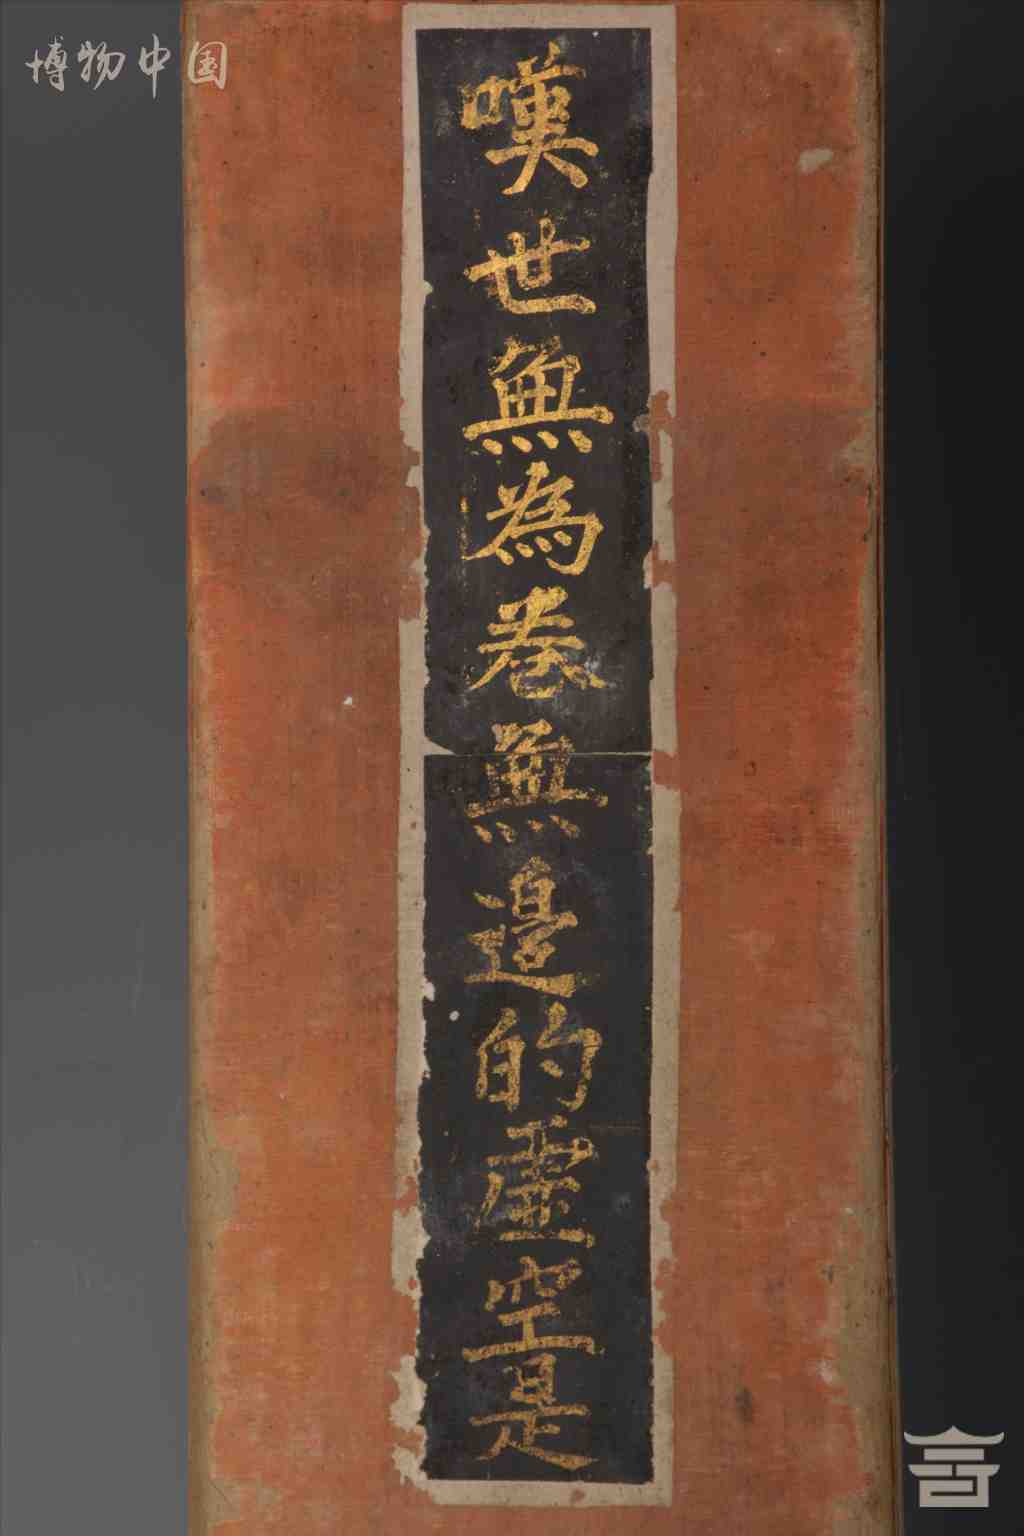 博物中国
嘆世無為卷無邉的虛空是